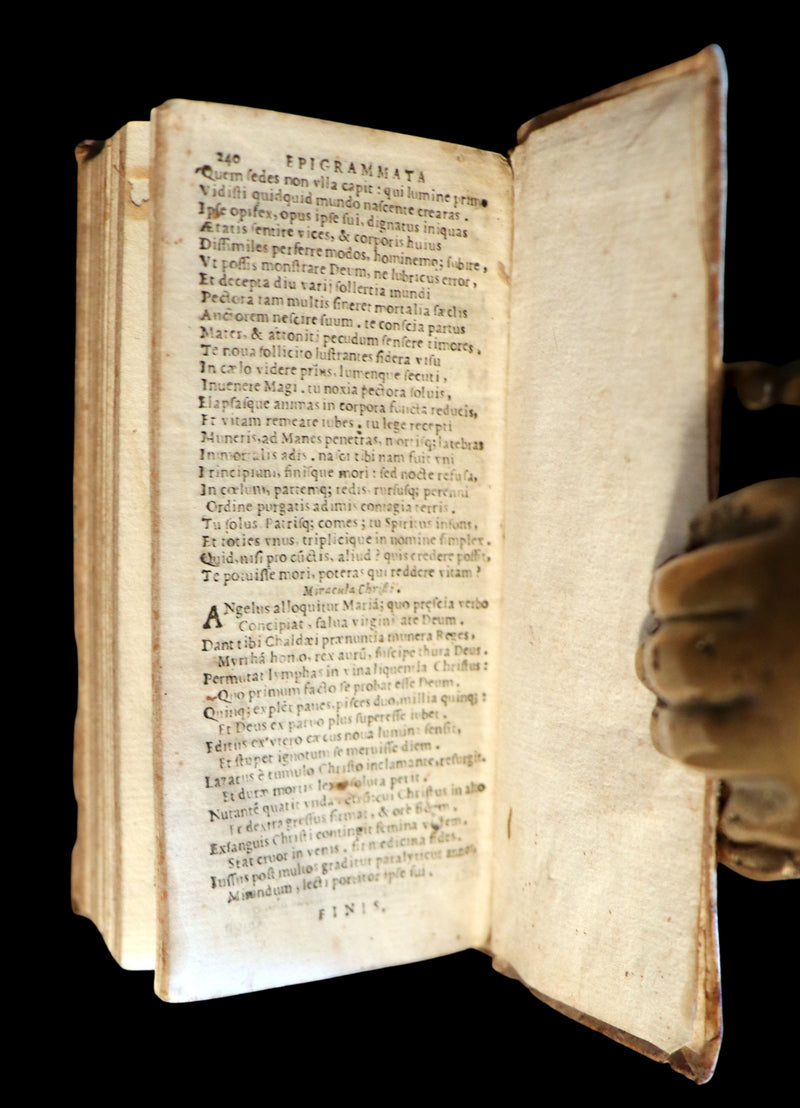 240 EPIGRAMMATA
Quem sedes non vlla capit: qui lumine primo
Vidisti quidquid mundo nascente crearas.
Ipse opifex, opus ipse sui, dignatus iniquas
Ætatis sentire vices, & corporis huius
Dissimiles perferre modos, hominemq; subire,
Vt possis monstrare Deum, ne lubricus error,
Et decepta diu varij sollertia mundi
Pectora tam multis sineret mortalia sæclis
Auctorem nescire suum. te conscia partus
Mater, & attoniti pecudum sensere timores.
Te noua sollicito lustrantes sidera visu
In cælo videre prius, lumenque secuti,
Inuenere Magi. tu noxia pectora soluis,
Elapsasque animas in corpora functa reducis,
Et vitam remeare iubes. tu lege recepti
Muneris, ad Manes penetras, mortisq; latebras
Immortalis adis. nasci tibi nam fuit vni
Principium, finisque mori: sed nocte refusa,
In cœlum, patremq; redis. rursusq; perenni
Ordine purgatis adimis contagia terris.
Tu solus Patrisq; comes; tu Spiritus insons,
Et toties vnus, triplicique in nomine simplex.
Quid, nisi pro cūctis, aliud? quis credere posset,
Te potuisse mori, poteras qui reddere vitam?
Miracula Christi.
ANgelus alloquitur Mariā; quo præscia verbo
Concipiat, salua virginitate Deum.
Dant tibi Chaldæi prænuntia munera Reges,
Myrrhā homo, rex aurū, suscipe thura Deus.
Permutat lymphas in vina liquentia Christus:
Quo primum facto se probat esse Deum.
Quinq; explēt panes, pisces duo, millia quinq;:
Et Deus ex paruo plus superesse iubet.
Editus ex vtero cæcus noua lumina sensit,
Et stupet ignotum se meruisse diem.
Lazarus è tumulo Christo inclamante, resurgit.
Et duræ mortis lex resoluta perit.
Nutantē quatit vnda retrū: cui Christus in alto
Et dextra gressus firmat, & ore fidem.
Exsanguis Christi contingit femina vestem.
Stat cruor in venis. fit medicina fides.
Iussus post multos graditur paralyticus annos
Mirandum, lecti portitor ipse sui.
FINIS.